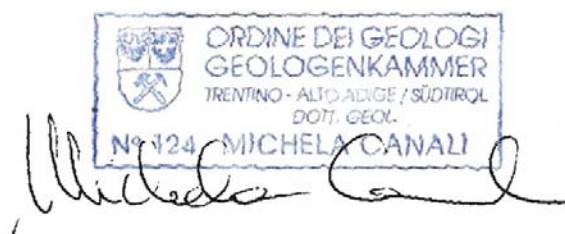 ORDINE DEI GEOLOGI
GEOLOGENKAMMER
TRENTINO - ALTO ADIGE / SÜDTIROL
DOTT. GEOL.
Nº 124 MICHELA CANALI
Michela Canali